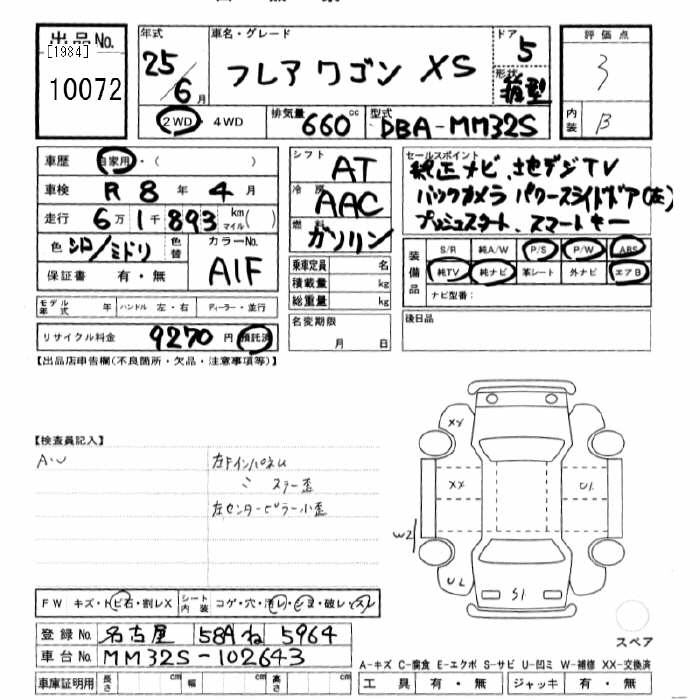 出品No. 年式 車名・グレード ドア 評価点
[1984]
10072 25/6月 フレアワゴン XS 5 3
形状 箱型
2WD 4WD 排気量 660cc 型式 DBA-MM32S 内装 B
車歴 自家用・( ) シフト AT セールスポイント 純正ナビ、地デジTV
車検 R8年4月 冷房 AAC バックカメラ パワースライドドア(左)
走行 6万1千893 km(マイル) 燃料 ガソリン プッシュスタート、スマートキー
色 シロ/ミドリ 色替 カラーNo. A1F
保証書 有・無
乗車定員 名
積載量 kg
総重量 kg
装備品 S/R 純A/W P/S P/W ABS
純TV 純ナビ 革シート 外ナビ エアB
ナビ型番:
モデル年式 年 ハンドル 左・右 ディーラー・並行
名変期限 月 日
後日品
リサイクル料金 9270円 預託済
【出品店申告欄(不良箇所・欠品・注意事項等)】
【検査員記入】
A・U
左FインパネU
〃 ステー歪
左センターピラー小歪
XY
XX U1
W2
UL S1
FW キズ・トビ石・割レX シート内装 コゲ・穴・汚レ・シミ・破レ・スレ
スペア
登録No. 名古屋 58A ね 5964
車台No. MM32S-102643
A-キズ C-腐食 E-エクボ S-サビ U-凹ミ W-補修 XX-交換済
車庫証明用 長さ cm 幅 cm 高さ cm 工具 有・無 ジャッキ 有・無